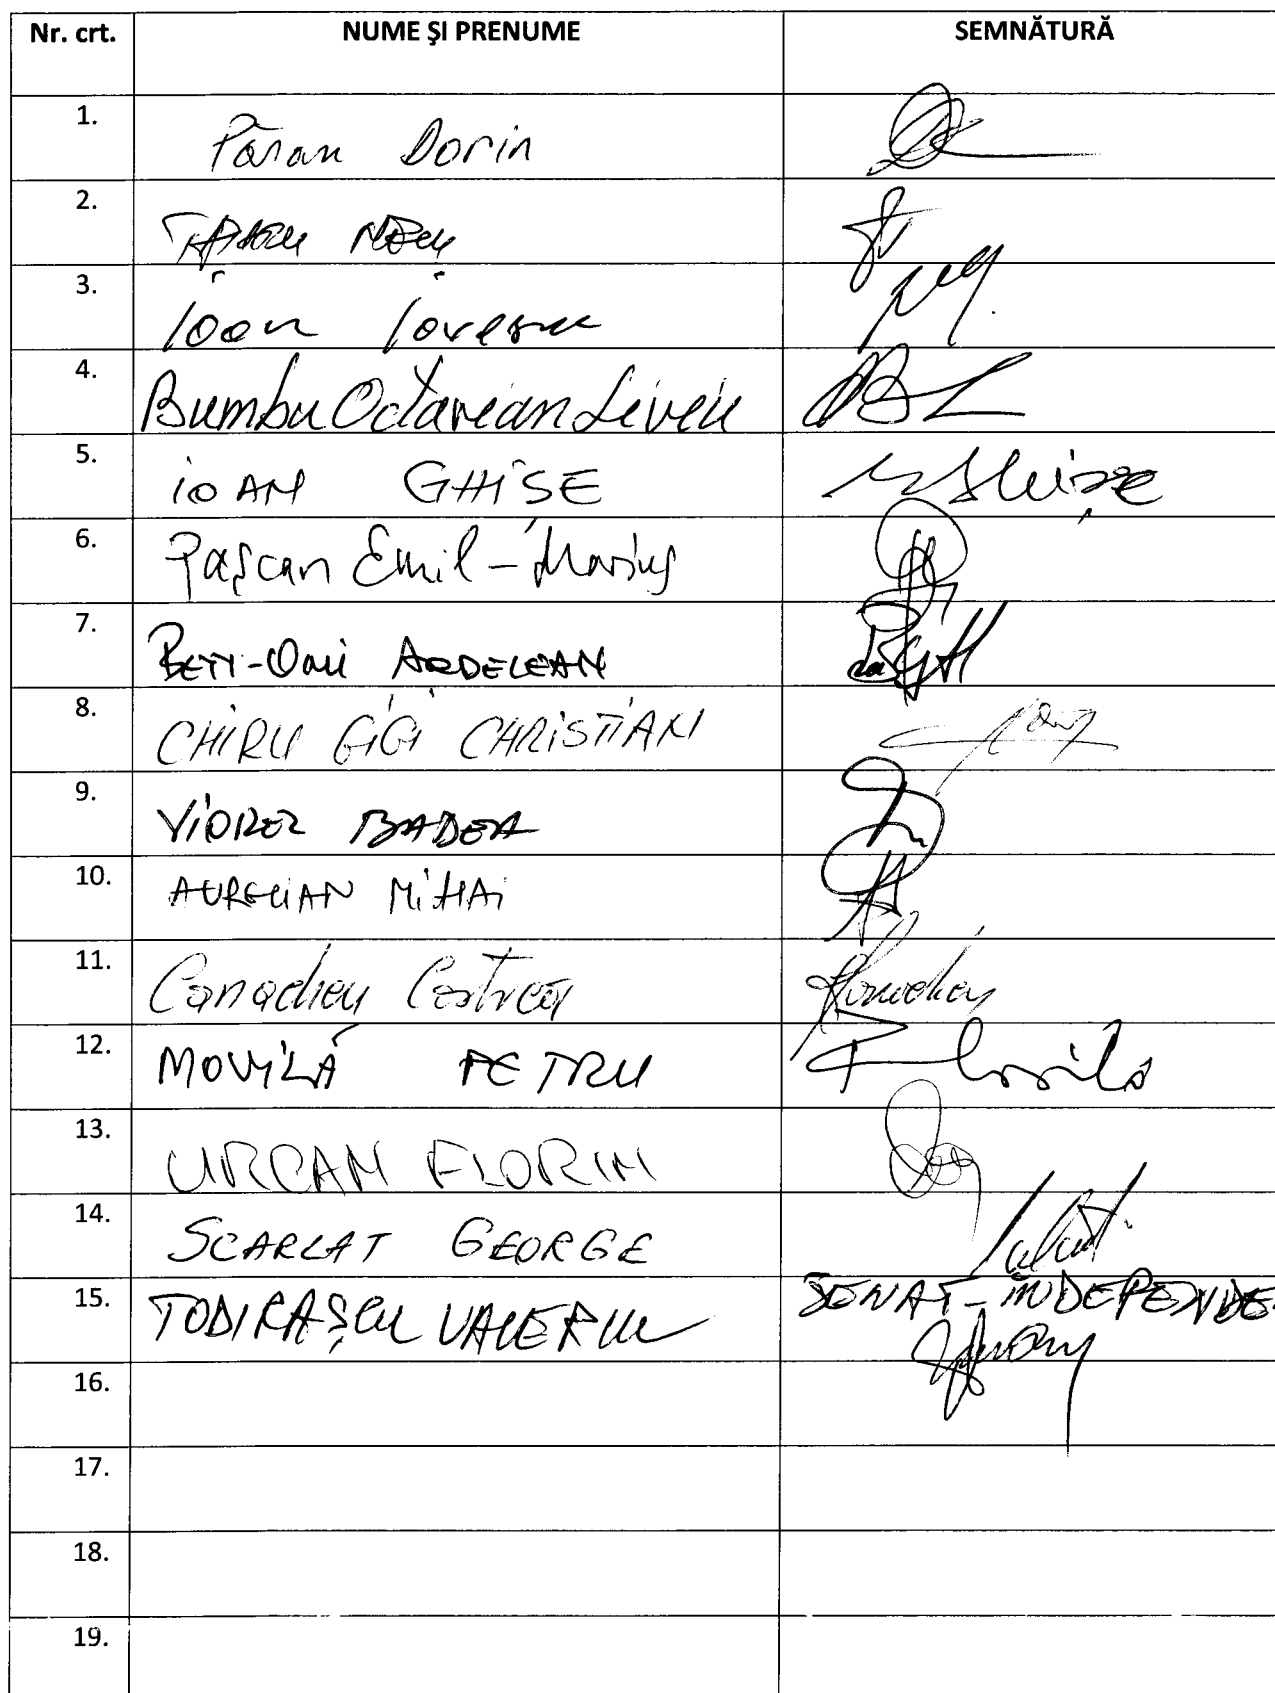 Nr. crt. NUME ŞI PRENUME SEMNĂTURĂ
1. Păran Dorin
2.
3. Ioan Iovescu
4. Bumbu Octavian Liviu
5. IOAN GHIŞE Ghişe
6. Paşcan Emil-Marius
7. BETI-Oni ARDELEAN
8. CHIRU GIGI CHRISTIAN
9. VIOREL BADEA
10. AURELIAN MIHAI
11. Canacheu Costică Canacheu
12. MOVILĂ PETRU
13. URCAN FLORIN
14. SCARLAT GEORGE
15. TODIRAŞCU VALERIU SENAT-INDEPENDE
16.
17.
18.
19.